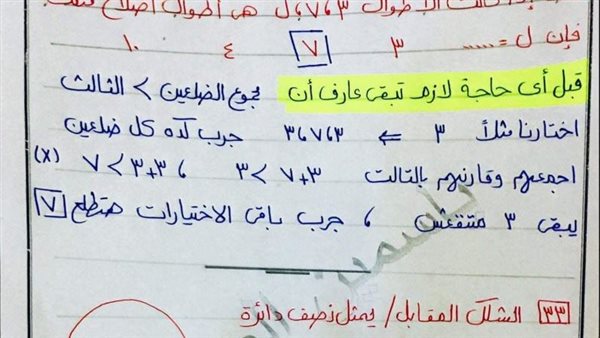 الأطوال ٣ ، ٧ ، ل هى أطوال أضلاع مثلث
فإن ل = ...... ٣ ٧ ٤ ١٠
قبل أى حاجة لازم تبقى عارف أن مجموع الضلعين > الثالث
اختارنا مثلاً ٣ ⇐ ٣،٧،٣ جرب كده كل ضلعين
اجمعهم وقارنهم بالتالت ٣+٧ > ٣ ، ٣+٣ > ٧ (X)
يبقى ٣ متنفعش ، جرب باقى الاختيارات هتطلع ٧
٣٣ الشكل المقابل / يمثل نصف دائرة